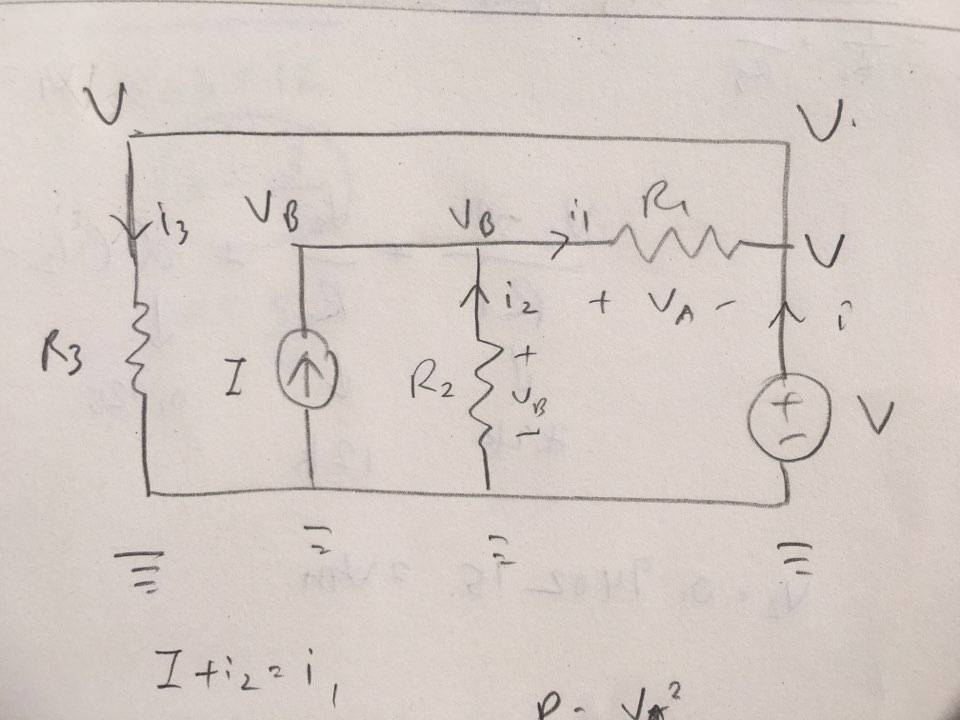 V V.
i3 VB VB i1 R1 V
i2 + VA - i
R3 I R2 + VB - + - V
I + i2 = i1
P = VA²